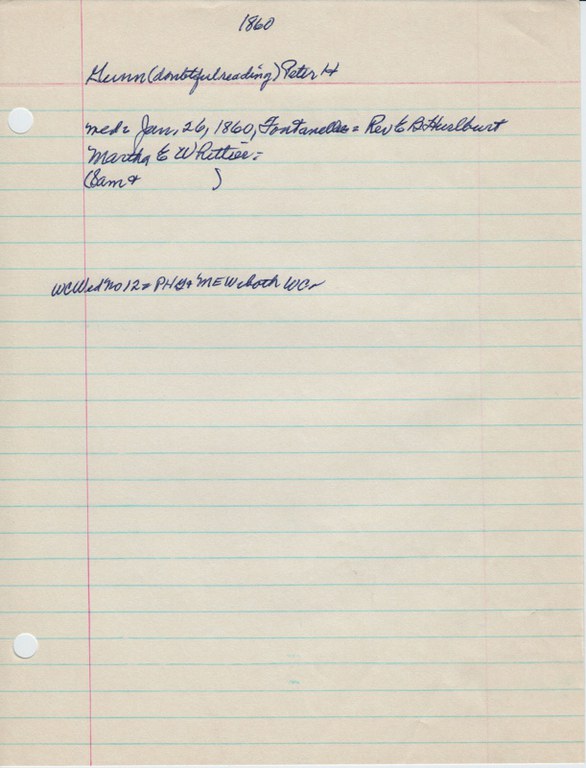 1860
Gunn (doubtful reading) Peter H
med = Jan, 26, 1860, Fontanelle = Rev E B Hurlburt
Martha E Whittier =
(Sam &        )
WC Wed No 12 = PHG & MEW both WC